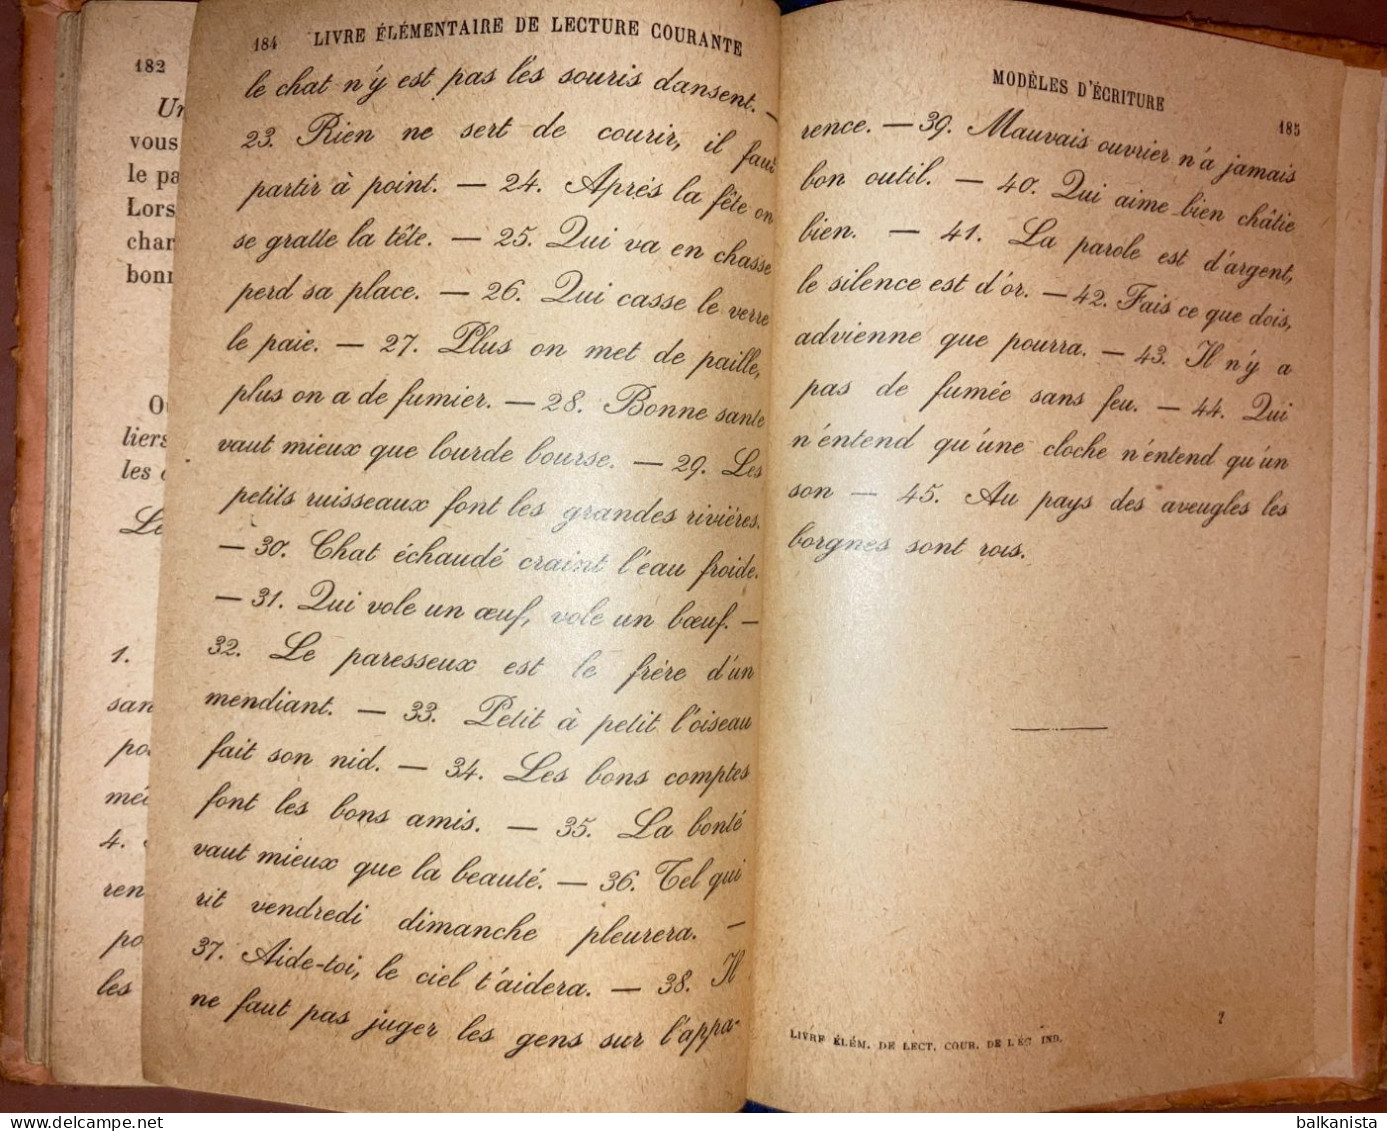 182
Un
vous
le pa
Lors
char
bonn
liers
les
Le
1.
san
po
mé
4.
ren
po
les
184 LIVRE ÉLÉMENTAIRE DE LECTURE COURANTE
le chat n'y est pas lés souris dansent. —
23. Rien ne sert de courir, il faut
partir à point. — 24. Aprés la fête on
se gratte la tête. — 25. Qui va en chasse
perd sa place. — 26. Qui casse le verre
le paie. — 27. Plus on met de paille,
plus on a de fumier. — 28. Bonne santé
vaut mieux que lourde bourse. — 29. Les
petits ruisseaux font les grandes riviéres.
— 30. Chat échaudé craint l'eau froide.
— 31. Qui vole un œuf, vole un bœuf. —
32. Le paresseux est le frère d'un
mendiant. — 33. Petit à petit l'oiseau
fait son nid. — 34. Les bons comptes
font les bons amis. — 35. La bonté
vaut mieux que la beauté. — 36. Tel qui
rit vendredi dimanche pleurera. —
37. Aide-toi, le ciel t'aidera. — 38. Il
ne faut pas juger les gens sur l'appa-
MODÈLES D'ÉCRITURE 185
rence. — 39. Mauvais ouvrier n'a jamais
bon outil. — 40. Qui aime bien châtie
bien. — 41. La parole est d'argent,
le silence est d'or. — 42. Fais ce que dois,
advienne que pourra. — 43. Il n'y a
pas de fumée sans feu. — 44. Qui
n'entend qu'une cloche n'entend qu'un
son — 45. Au pays des aveugles les
borgnes sont rois.
LIVRE ÉLÉM. DE LECT. COUR. DE L'ÉC. IND.
balkanista